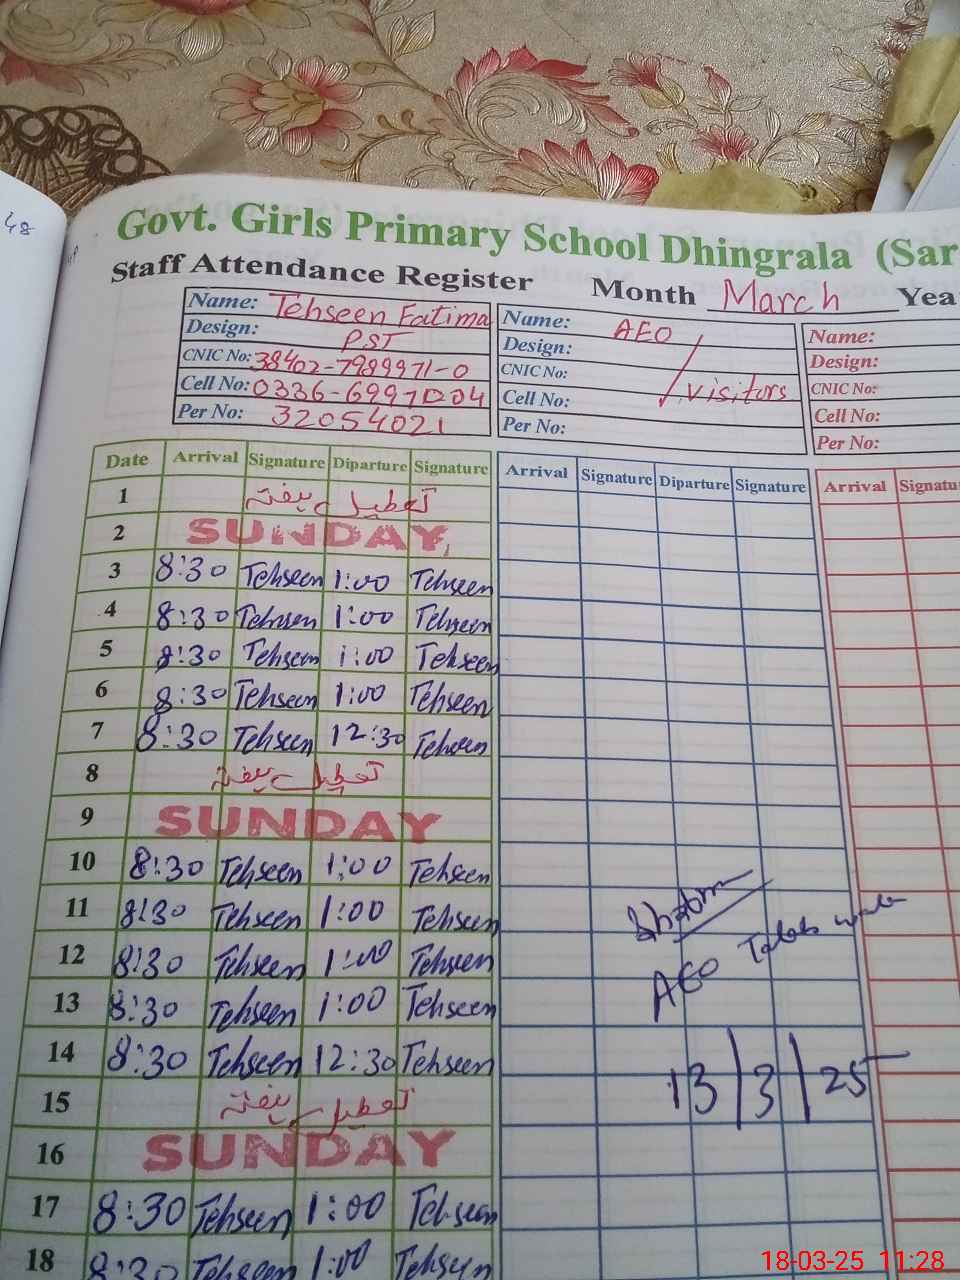 48
Govt. Girls Primary School Dhingrala (Sar
Staff Attendance Register Month March Yea
Name: Tehseen Fatima
Design: PST
CNIC No: 38402-7989971-0
Cell No: 0336-6997204
Per No: 32054021
Name: AEO
Design:
CNIC No: visitors
Cell No:
Per No:
Name:
Design:
CNIC No:
Cell No:
Per No:
Date Arrival Signature Diparture Signature Arrival Signature Diparture Signature Arrival Signatu
1 تعطیل ہفتہ
2 SUNDAY
3 8:30 Tehseen 1:00 Tehseen
4 8:30 Tehseen 1:00 Tehseen
5 8:30 Tehseen 1:00 Tehseen
6 8:30 Tehseen 1:00 Tehseen
7 8:30 Tehseen 12:30 Tehseen
8 تعطیل ہفتہ
9 SUNDAY
10 8:30 Tehseen 1:00 Tehseen
11 8:30 Tehseen 1:00 Tehseen
12 8:30 Tehseen 1:00 Tehseen
13 8:30 Tehseen 1:00 Tehseen
14 8:30 Tehseen 12:30 Tehseen
15 تعطیل ہفتہ
16 SUNDAY
17 8:30 Tehseen 1:00 Tehseen
18 8:30 Tehseen 1:00 Tehseen
AEO
13/3/25
18-03-25 11:28